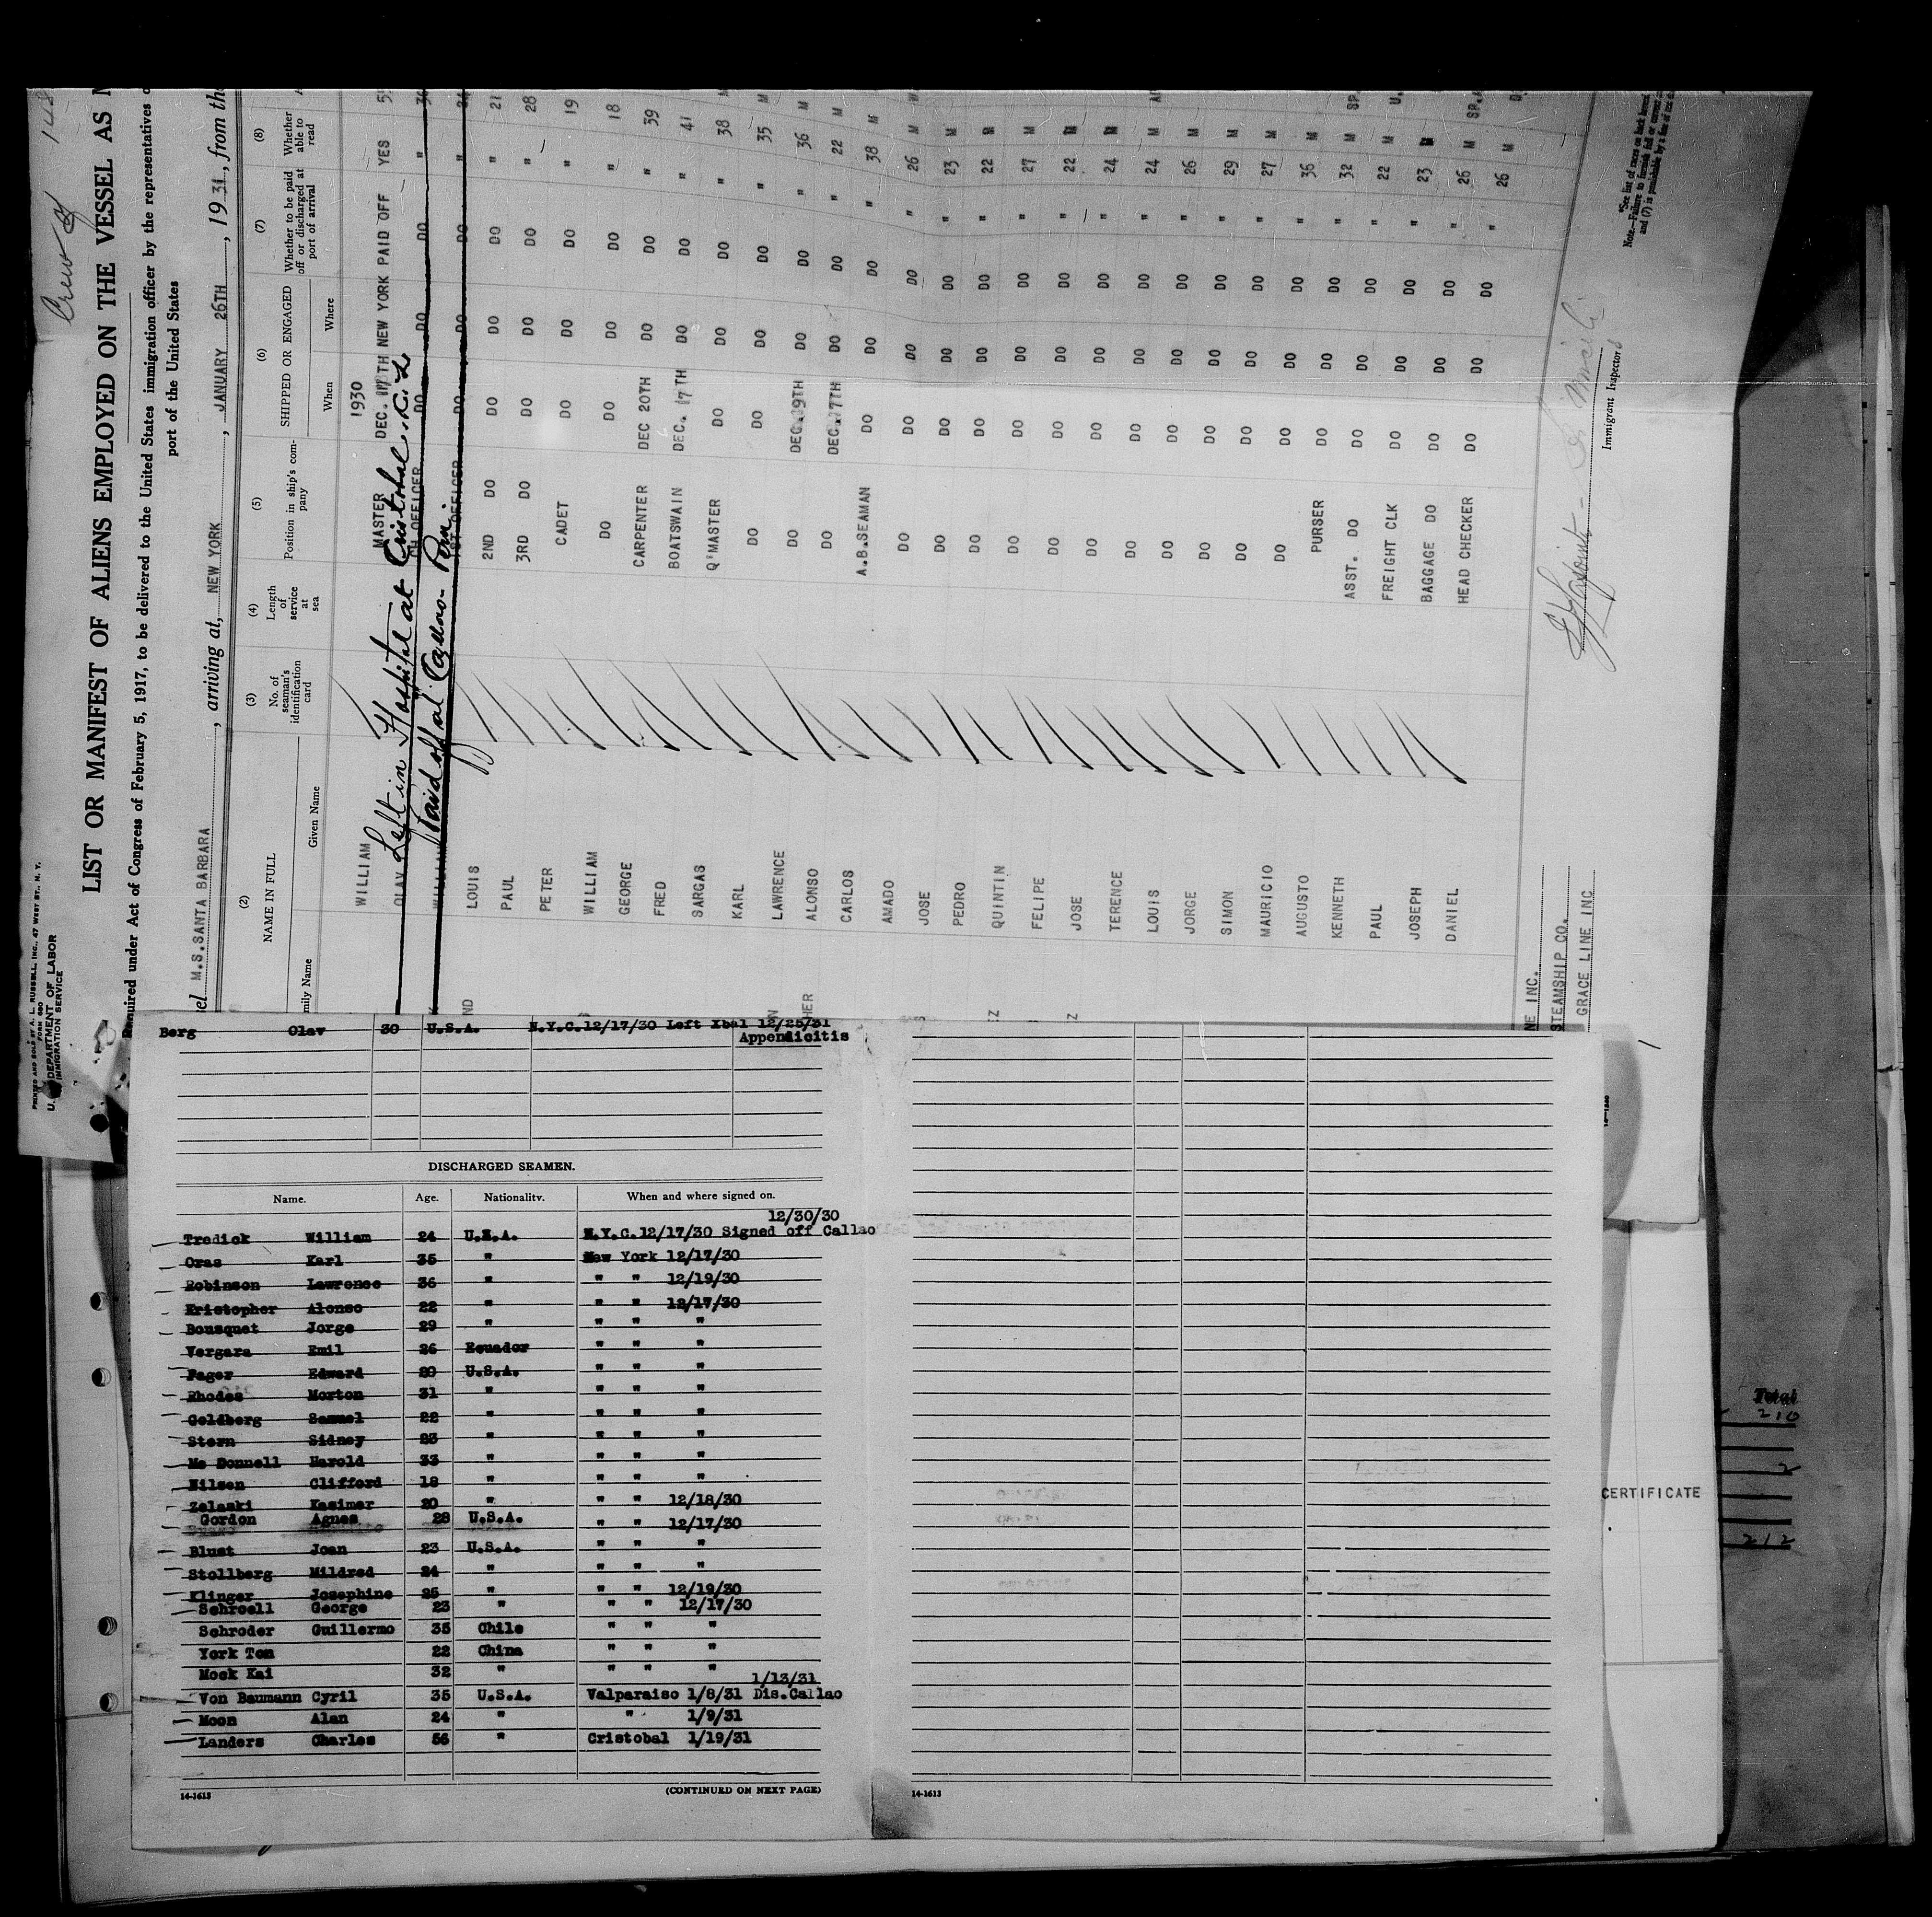 Crew
PRINTED AND SOLD BY A. L. RUSSELL, INC., 47 WEST ST., N. Y.
FORM 680
U. S. DEPARTMENT OF LABOR
IMMIGRATION SERVICE
LIST OR MANIFEST OF ALIENS EMPLOYED ON THE VESSEL AS
Required under Act of Congress of February 5, 1917, to be delivered to the United States immigration officer by the representatives
port of the United States
M.S. SANTA BARBARA, arriving at, NEW YORK, JANUARY 26TH, 1931, from the
(2) (3) (4) (5) (6) (7) (8)
NAME IN FULL
No. of seaman's identification card
Length of service at sea
Position in ship's company
SHIPPED OR ENGAGED
Whether to be paid off or discharged at port of arrival
Whether able to read
Given Name
When
Where
1930
WILLIAM MASTER DEC. 17TH NEW YORK PAID OFF YES
OLAV CH OFFICER DO DO DO "
Left in Hospital at Cristobal
WILLIAM 1ST OFFICER DO DO DO "
Paid off at Callao - Peru.
LOUIS 2ND DO DO DO DO " 21
PAUL 3RD DO DO DO DO " 28
PETER CADET DO DO DO " 19
WILLIAM DO DO DO DO " 18
GEORGE CARPENTER DEC 20TH DO DO " 39
FRED BOATSWAIN DEC. 17TH DO DO " 41
SARGAS Q'MASTER DO DO DO " 38 M
KARL DO DO DO DO " 35 M
LAWRENCE DO DEC. 19TH DO DO " 36 M
ALONSO DO DEC. 17TH DO DO " 22 M
CARLOS A.B.SEAMAN DO DO DO " 38 M
AMADO DO DO DO DO " 26 M
JOSE DO DO DO DO " 23 M
PEDRO DO DO DO DO " 22 M
QUINTIN DO DO DO DO " 27 M
FELIPE DO DO DO DO " 22 M
JOSE DO DO DO DO " 24 M
TERENCE DO DO DO DO " 24 M
LOUIS DO DO DO DO " 26 M
JORGE DO DO DO DO " 29 M
SIMON DO DO DO DO " 27 M
MAURICIO DO DO DO DO " 36 M
AUGUSTO PURSER DO DO DO " 32 M
KENNETH ASST. DO DO DO DO " 22 M
PAUL FREIGHT CLK DO DO DO " 23 M
JOSEPH BAGGAGE DO DO DO DO " 26 M
DANIEL HEAD CHECKER DO DO DO " 26 M
STEAMSHIP CO.
GRACE LINE INC
Immigrant Inspector
*See list of races on back hereof.
Berg Olav 30 U.S.A. N.Y.C.12/17/30 Left Xbal 12/25/31
Appendicitis
DISCHARGED SEAMEN.
Name. Age. Nationality. When and where signed on.
12/30/30
Tredick William 24 U.S.A. N.Y.C.12/17/30 Signed off Callao
Oras Karl 35 " New York 12/17/30
Robinson Lawrence 36 " " " 12/19/30
Kristopher Alonso 22 " " " 12/17/30
Bousquet Jorge 29 " " " "
Vergara Emil 26 Ecuador " " "
Pager Edward 20 U.S.A. " " "
Rhodes Morton 31 " " " "
Goldberg Samuel 22 " " " "
Stern Sidney 23 " " " "
Mc Donnell Harold 33 " " " "
Nilsen Clifford 18 " " " "
Zelaski Kasimer 20 " " " 12/18/30
Gordon Agnes 28 U.S.A. " " 12/17/30
Blust Joan 23 U.S.A. " " "
Stollberg Mildred 24 " " " "
Klinger Josephine 25 " " " 12/19/30
Schroell George 23 " " " 12/17/30
Schroder Guillermo 35 Chile " " "
York Ton 22 China " " "
Mock Kai 32 " " " "
1/13/31
Von Baumann Cyril 35 U.S.A. Valparaiso 1/8/31 Dis.Callao
Moon Alan 24 " " 1/9/31
Landers Charles 56 " Cristobal 1/19/31
14-1613 (CONTINUED ON NEXT PAGE)
14-1613
CERTIFICATE
Total
210
2
212